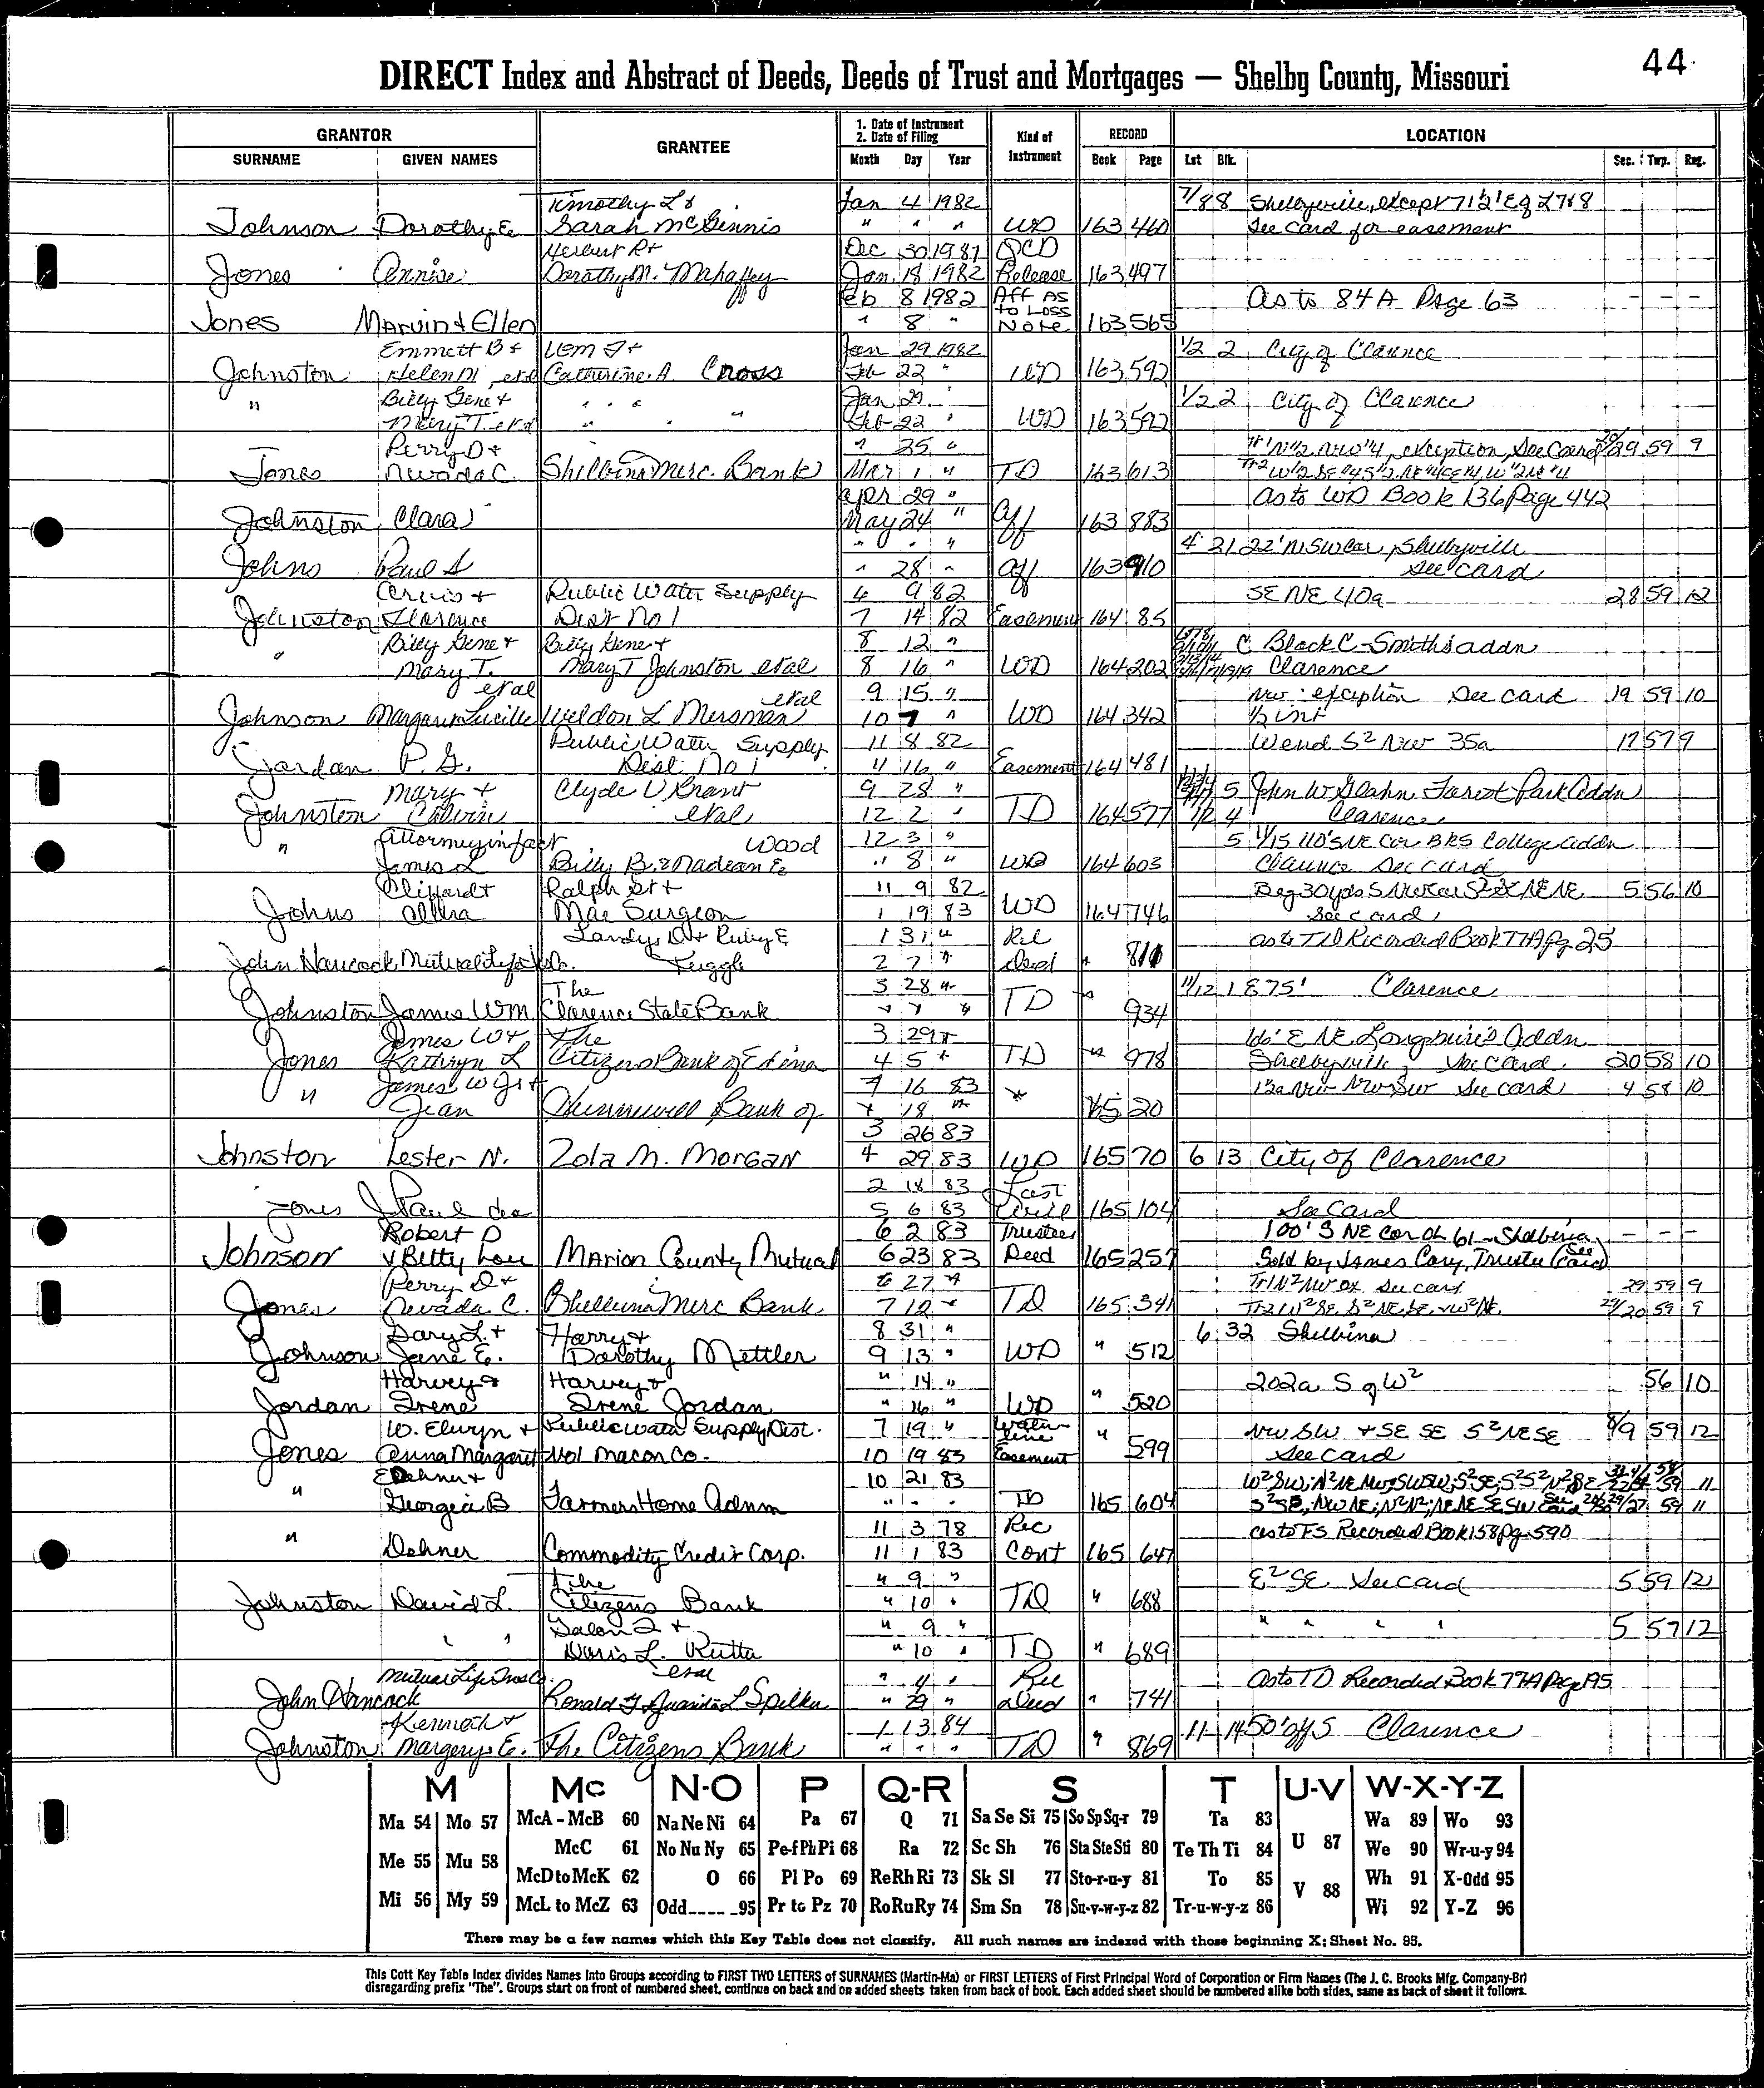 44
DIRECT Index and Abstract of Deeds, Deeds of Trust and Mortgages — Shelby County, Missouri
GRANTOR GRANTEE 1. Date of Instrument 2. Date of Filing Kind of Instrument RECORD LOCATION
SURNAME GIVEN NAMES Month Day Year Book Page Lot Blk. Sec. Twp. Rng.
Timothy L & Jan 4 1982 7/8 8 Shelbyville, except 71 2' E of L 7&8
Johnson Dorothy E Sarah McGinnis " " " WD 163 460 See card for easement
Herbert R + Dec 30 1981 QCD
Jones Annise Dorothy M. Mahaffey Jan 18 1982 Release 163 497
Feb 8 1982 Aff As to Loss As to 84A Page 63
Jones Marvin & Ellen " 8 " Note 163 565
Emmett B + Wm F + Jan 29 1982 1/2 2 City of Clarence
Johnston Helen M, etal Catherine A. Cross Feb 22 " WD 163 592
" Billy Gene + " " " Jan 29 1/2 2 City of Clarence
Mary T. etal " " " Feb 22 " WD 163 592
Perry D + " 25 " exception, See Card 29 59 9
Jones Nevada C. Shelbina Merc. Bank Mar 1 " TD 163 613
Apr 29 " As to WD Book 136 Page 442
Johnston Clara May 24 " Aff 163 883
" " " 4 21 22' N SW cor, Shelbyville
Johns Paul S " 28 " Aff 163 910 See card
Arvis + Public Water Supply 6 9 82 SE NE 40a 28 59 12
Johnston Florence Dist No 1 7 14 82 Easement 164 85
" Billy Gene + Billy Gene + 8 12 " C Block C - Smith's addn
Mary T. etal Mary T Johnston etal 8 16 " WD 164 202 Clarence
etal 9 15 " NW: exception See card 19 59 10
Johnson Margaret Lucille Weldon L Mersman 10 7 " WD 164 342 1/2 int
Public Water Supply 11 8 82 W end S2 NW 35a 17 57 9
Jordan P. G. Dist. No 1 11 16 " Easement 164 481
Mary + Clyde V Brant 9 28 " 5 John W Glahn Forest Park Addn
Johnston Calvin etal 12 2 " TD 164 577 1/2 4 Clarence
" Attorney in fact Wood 12 3 " 5 11/15 110' S NE Cor BK5 College addn
James L Billy B. & Nadean E " 8 " WD 164 603 Clarence See card
Clifford + Ralph Sr + 11 9 82 Beg 30 yds S NW cor NE NE 5 56 10
Johns Allera Mae Surgeon 1 19 83 WD 164 746 See card
Landys D + Ruby E 1 31 " Rel as to TD Recorded Book 77A pg 25
John Hancock Mutual Life Ins Co. Tuggle 2 7 " Deed " 811
The 3 28 " 11/12 1 E 75' Clarence
Johnston James Wm Clarence State Bank " " " TD " 934
James W + The 3 29 " 166' E NE Longmire's Addn
Jones Kathryn L Citizens Bank of Edina 4 5 " TD " 978 Shelbyville, See Card 20 58 10
" James W Jr + 4 16 83 NW NW SW See card 4 58 10
Jean Hunnewell Bank of " 18 " " 165 20
3 26 83
Johnston Lester N. Zola M. Morgan 4 29 83 WD 165 70 6 13 City of Clarence
2 18 83 Last
Jones J Paul dec 5 6 83 Will 165 104 See Card
Robert D 6 2 83 Trustees 100' S NE Cor OL 61 - Shelbina
Johnson & Betty Lou Marion County Mutual 6 23 83 Deed 165 257 Sold by James Cary, Trustee (See Card)
Perry D + 6 27 " Tr 1 N2 NW ex See card 29 59 9
Jones Nevada C. Shelbina Merc Bank 7 12 " TD 165 341 Tr 2 W2 SE, S2 NE SE & W2 NE 29/20 59 9
Gary L. + Harry + 8 31 " 6 32 Shelbina
Johnson Jane E. Dorothy Mettler 9 13 " WD " 512
Harvey & Harvey & " 14 " 202a S of W2 56 10
Jordan Irene Irene Jordan " 16 " WD " 520
W. Elwyn + Public Water Supply Dist. 7 19 " Water line NW SW + SE SE S2 NE SE 8/9 59 12
Jones Anna Margaret No 1 Macon Co. 10 19 83 Easement " 599 See card
E Dehner + 10 21 83 59 11
" Georgia B Farmers Home Admn " " " TD 165 604 59 11
11 3 78 Rec as to FS Recorded Book 158 pg. 590
" Dehner Commodity Credit Corp. 11 1 83 Cont 165 647
The " 9 " E2 SE See card 5 59 12
Johnston David L. Citizens Bank " 10 " TD " 688
Galen I + " 9 " " " " " 5 57 12
" " Doris L. Rutta " 10 " TD " 689
Mutual Life Ins Co. etal " 4 " Rel as to TD Recorded Book 77A Page 195
John Hancock Ronald G & Juanita L Spilker " 29 " Deed " 741
Kenneth + 1 13 84 11 14 50' off S Clarence
Johnston Margery E. The Citizens Bank " " " TD " 869
M Mc N-O P Q-R S T U-V W-X-Y-Z
Ma 54 Mo 57 McA - McB 60 Na Ne Ni 64 Pa 67 Q 71 Sa Se Si 75 So Sp Sq-r 79 Ta 83 U 87 Wa 89 Wo 93
McC 61 No Nu Ny 65 Pe-f Ph Pi 68 Ra 72 Sc Sh 76 Sta Ste Sti 80 Te Th Ti 84 We 90 Wr-u-y 94
Me 55 Mu 58 McD to McK 62 O 66 Pl Po 69 Re Rh Ri 73 Sk Sl 77 Sto-r-u-y 81 To 85 V 88 Wh 91 X-Odd 95
Mi 56 My 59 McL to McZ 63 Odd 95 Pr to Pz 70 Ro Ru Ry 74 Sm Sn 78 Su-v-w-y-z 82 Tr-u-w-y-z 86 Wi 92 Y-Z 96
There may be a few names which this Key Table does not classify. All such names are indexed with those beginning X; Sheet No. 95.
This Cott Key Table Index divides Names into Groups according to FIRST TWO LETTERS of SURNAMES (Martin-Ma) or FIRST LETTERS of First Principal Word of Corporation or Firm Names (The J. C. Brooks Mfg. Company-Br)
disregarding prefix "The". Groups start on front of numbered sheet, continue on back and on added sheets taken from back of book. Each added sheet should be numbered alike both sides, same as back of sheet it follows.